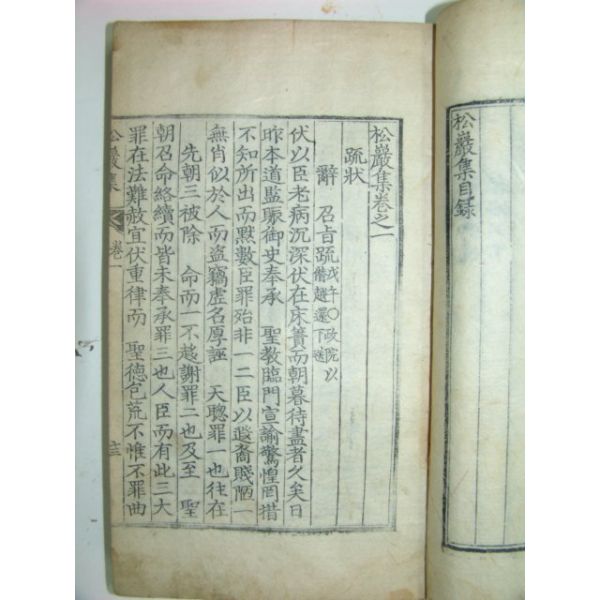 松巖集目錄
松巖集卷之一
疏狀
辭 召旨疏戊午〇政院以僭越還下送
伏以臣老病沉深伏在床簀而朝暮待盡者久矣日
昨本道監賑御史奉承 聖教臨門宣諭驚惶罔措
不知所出而默數臣罪殆非一二臣以遐裔賤陋一
無肖似於人而盜竊虛名厚誣 天聰罪一也往在
先朝三被除 命而一不趍謝罪二也及至 聖
朝召命絡續而皆未奉承罪三也人臣而有此三大
罪在法難赦宜伏重律而 聖德包荒不惟不罪曲
松巖集 卷一 十三